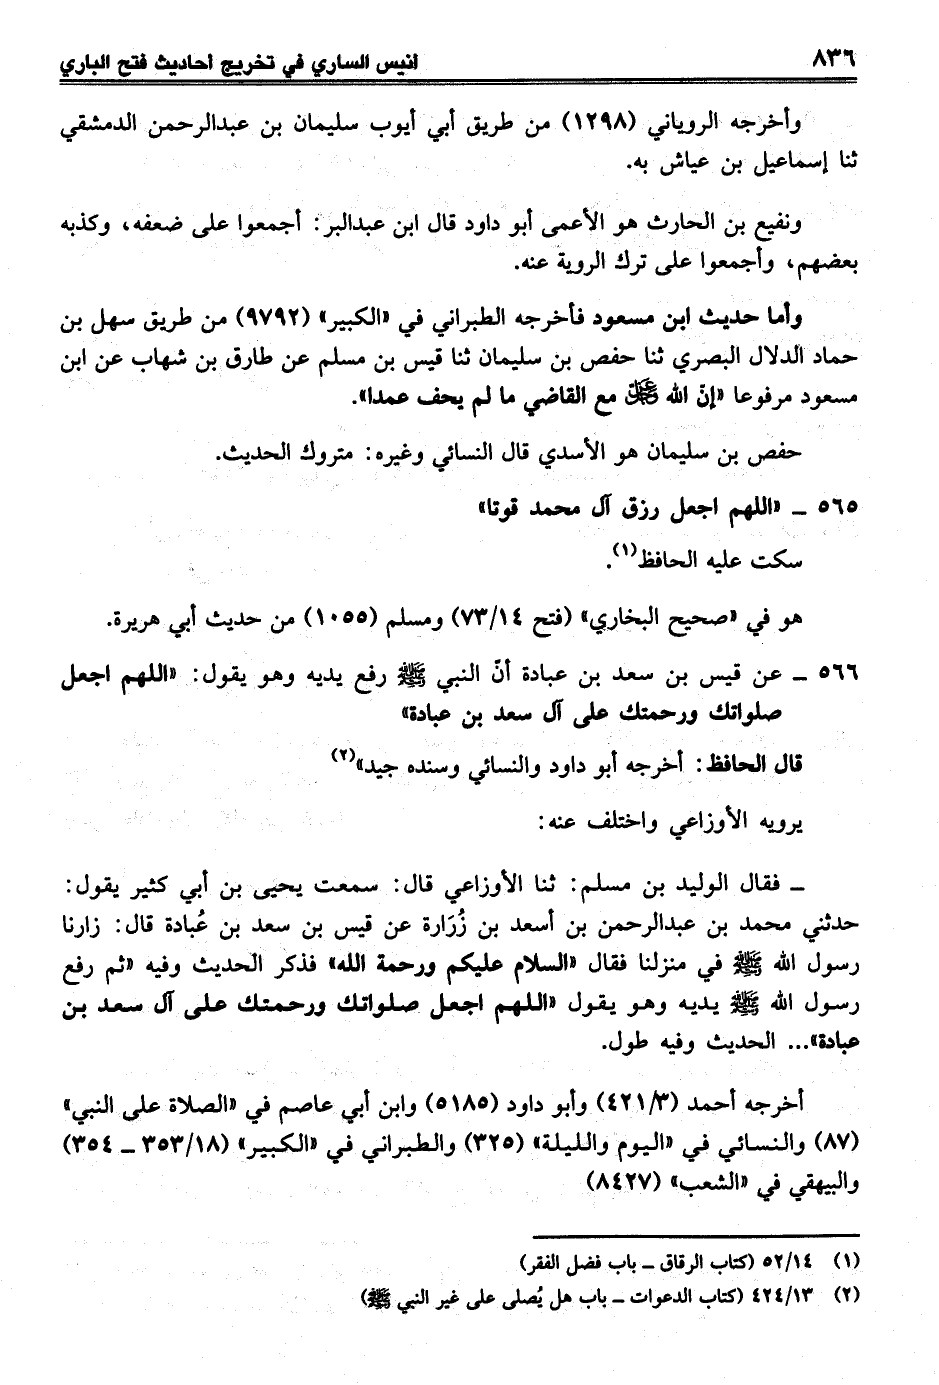 ٨٣٦ أنيس الساري في تخريج أحاديث فتح الباري
وأخرجه الروياني (١٢٩٨) من طريق أبي أيوب سليمان بن عبدالرحمن الدمشقي
ثنا إسماعيل بن عياش به.
ونفيع بن الحارث هو الأعمى أبو داود قال ابن عبدالبر: أجمعوا على ضعفه، وكذبه
بعضهم، وأجمعوا على ترك الروية عنه.
وأما حديث ابن مسعود فأخرجه الطبراني في «الكبير» (٩٧٩٢) من طريق سهل بن
حماد الدلال البصري ثنا حفص بن سليمان ثنا قيس بن مسلم عن طارق بن شهاب عن ابن
مسعود مرفوعا «إنّ الله ﷿ مع القاضي ما لم يحف عمدا».
حفص بن سليمان هو الأسدي قال النسائي وغيره: متروك الحديث.
٥٦٥ ـ «اللهم اجعل رزق آل محمد قوتا»
سكت عليه الحافظ(١).
هو في «صحيح البخاري» (فتح ٧٣/١٤) ومسلم (١٠٥٥) من حديث أبي هريرة.
٥٦٦ ـ عن قيس بن سعد بن عبادة أنّ النبي ﷺ رفع يديه وهو يقول: «اللهم اجعل
صلواتك ورحمتك على آل سعد بن عبادة»
قال الحافظ: أخرجه أبو داود والنسائي وسنده جيد»(٢)
يرويه الأوزاعي واختلف عنه:
ـ فقال الوليد بن مسلم: ثنا الأوزاعي قال: سمعت يحيى بن أبي كثير يقول:
حدثني محمد بن عبدالرحمن بن أسعد بن زُرَارة عن قيس بن سعد بن عُبادة قال: زارنا
رسول الله ﷺ في منزلنا فقال «السلام عليكم ورحمة الله» فذكر الحديث وفيه «ثم رفع
رسول الله ﷺ يديه وهو يقول «اللهم اجعل صلواتك ورحمتك على آل سعد بن
عبادة»... الحديث وفيه طول.
أخرجه أحمد (٤٢١/٣) وأبو داود (٥١٨٥) وابن أبي عاصم في «الصلاة على النبي»
(٨٧) والنسائي في «اليوم والليلة» (٣٢٥) والطبراني في «الكبير» (٣٥٣/١٨ ـ ٣٥٤)
والبيهقي في «الشعب» (٨٤٢٧)
(١) ٥٢/١٤ (كتاب الرقاق ـ باب فضل الفقر)
(٢) ٤٢٤/١٣ (كتاب الدعوات ـ باب هل يُصلى على غير النبي ﷺ)